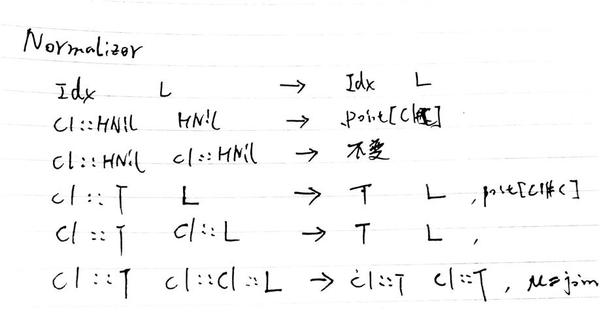 Normalizer
Idx L → Idx L
Cl::HNil HNil → point[Cl]
Cl::HNil cl::HNil → 不变
cl::T L → T L , point[Cl#C]
Cl::T Cl::L → T L ,
Cl::T cl::Cl::L → cl::T cl::T , μ=join